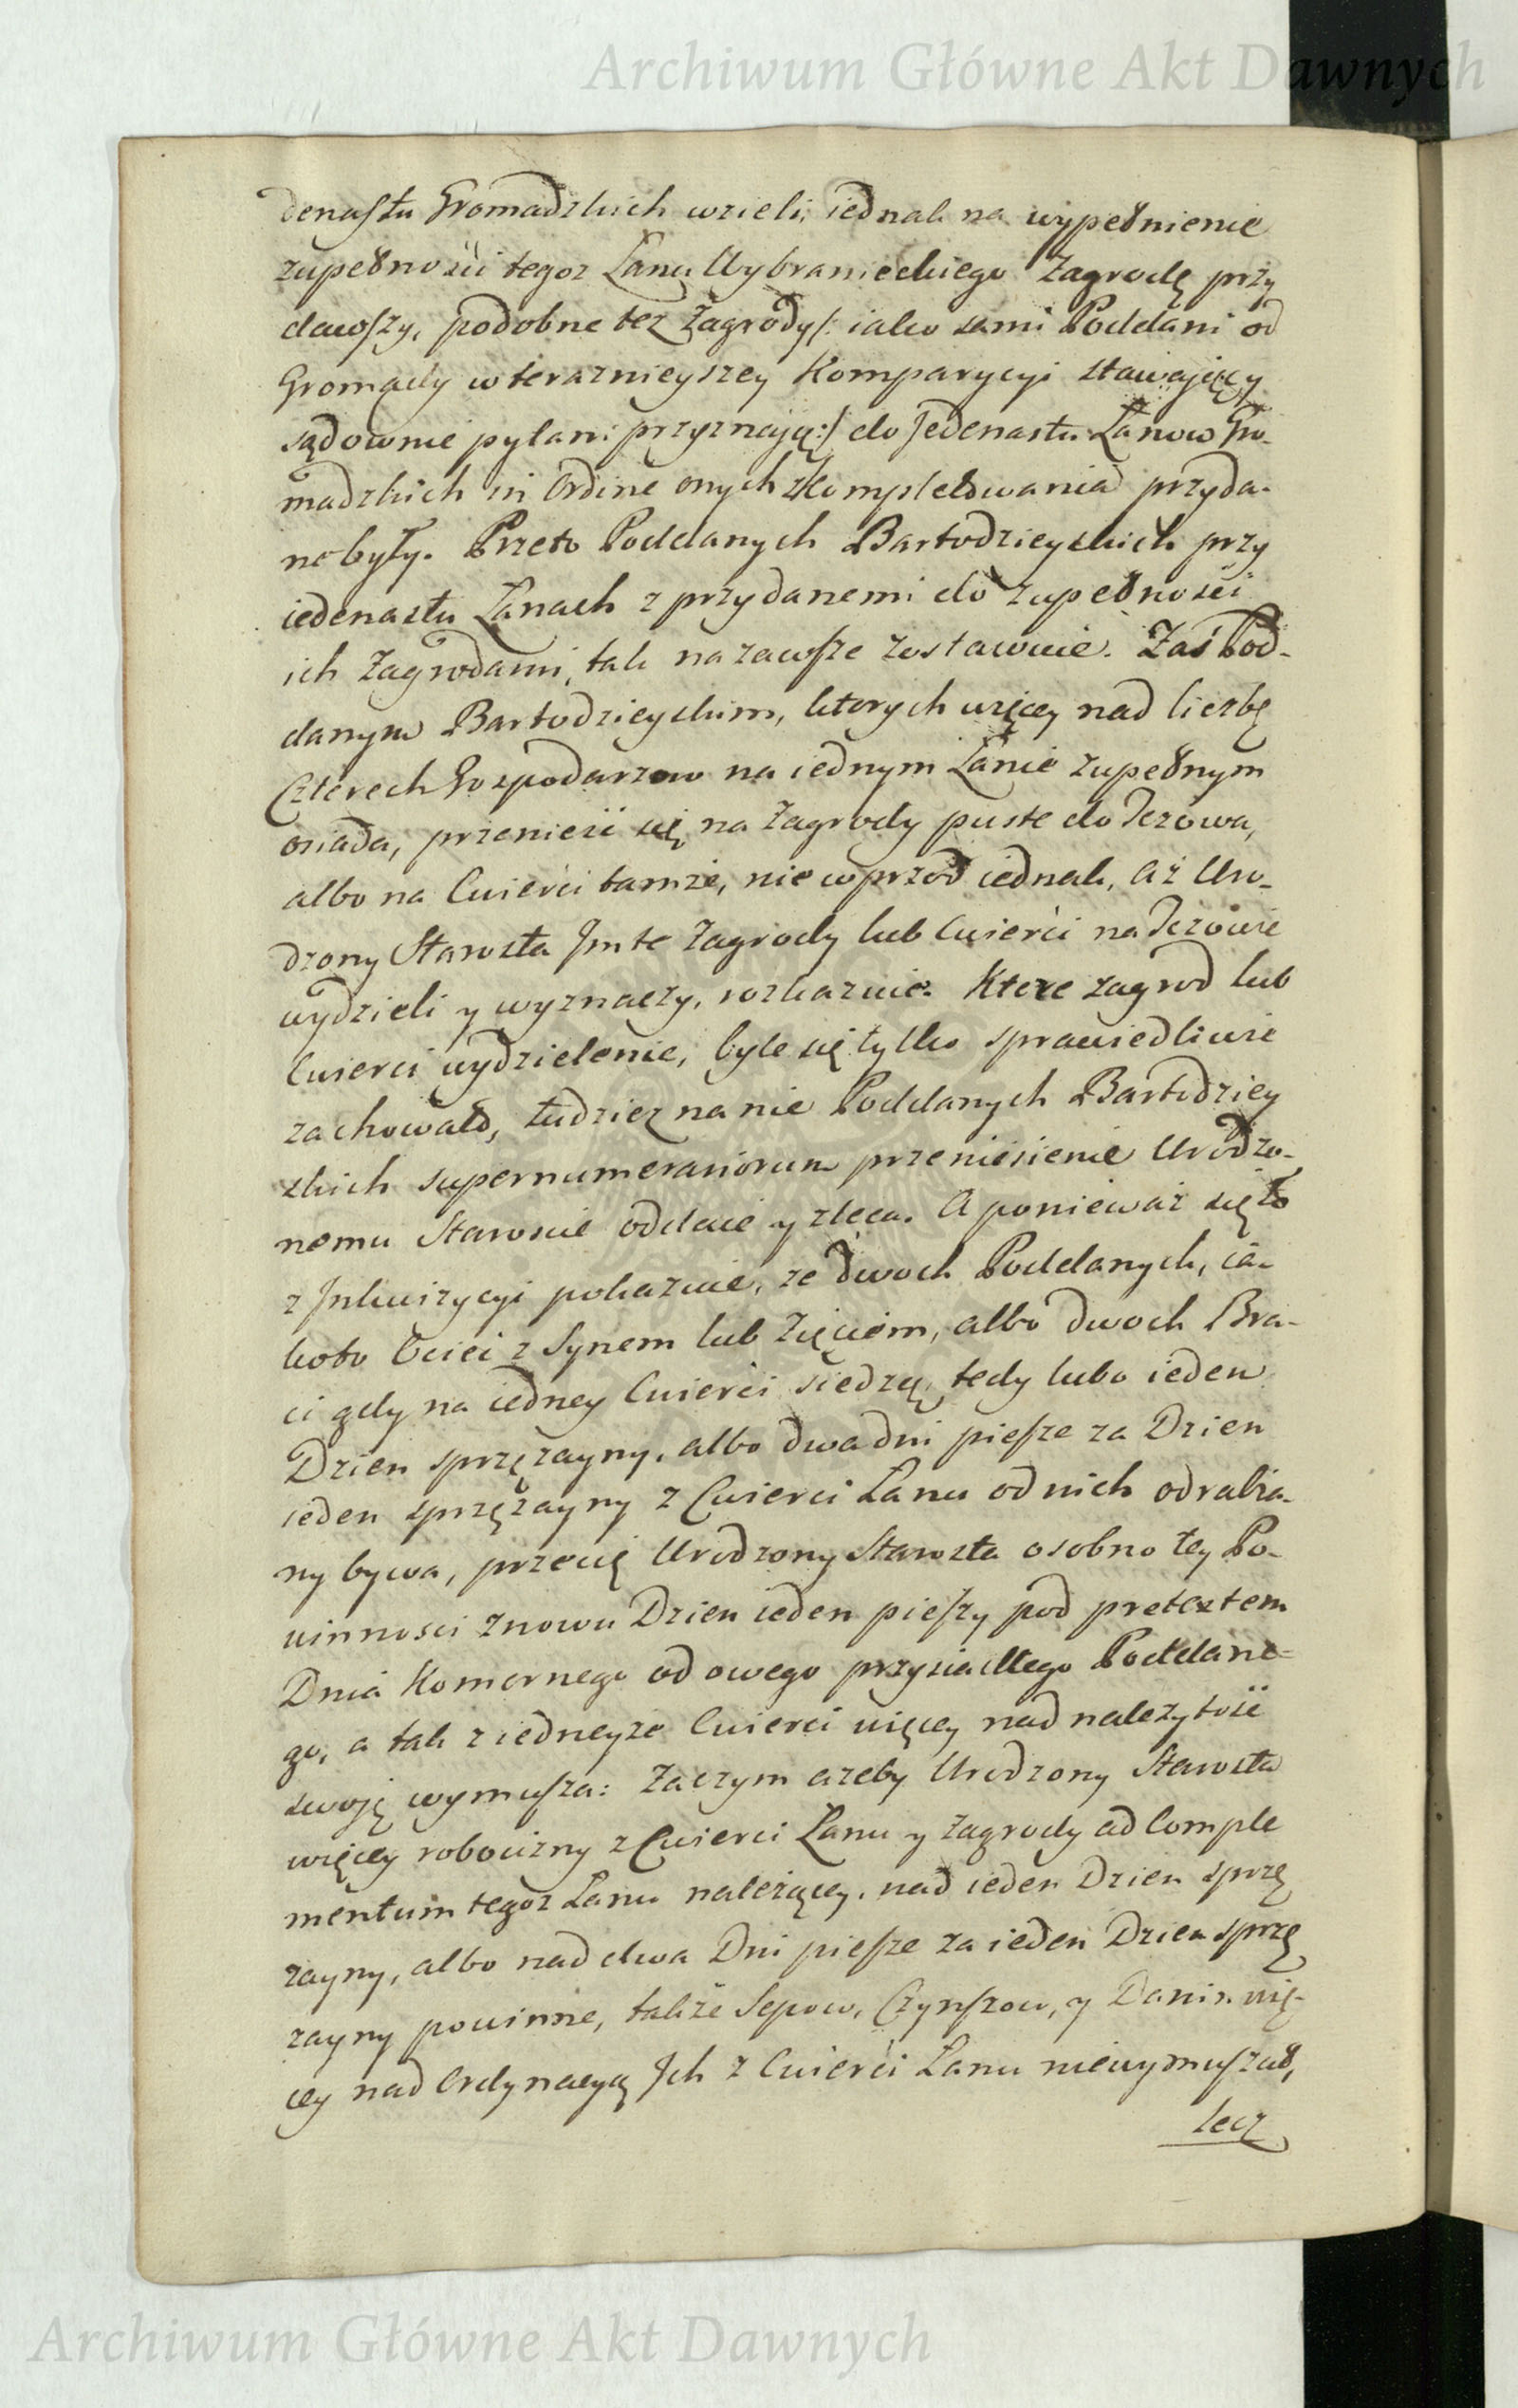 Archiwum Główne Akt Dawnych
denastu Gromadzkich wzieli, iednak na wypełnienie
zupełnosći tegoz Łanu Wybranieckiego Zagrodę przy
dawszy, podobne tez Zagrody /: iako sami Poddani od
Gromady w teraznieyszey Komparycyi stawaiący
sądownie pytani przyznaią :/ do Jedenastu Łanow Gro-
madzkich in Ordine onych zkompletowania przyda-
ne były. Przeto Poddanych Bartodzieyskich przy
iedenastu Łanach z przydanemi do zupełnosći
ich Zagrodami, tak na zawsze zostawuie. Zaś Pod-
danym Bartodzieyskim, ktorych więcey nad liczbę
Czterech Gospodarzow na iednym Łanie zupełnym
osiada, przenieść się na Zagrody puste do Jezowa,
albo na Cwierci tamże, nie wprzod iednak, aż Uro-
dzony Starosta Im te Zagrody lub Cwierći na Jezowie
wydzieli y wyznaczy, rozkazuie. Ktore zagrod lub
Cwierci wydzielenie, byle się tylko sprawiedliwie
zachował, tudziez na nie Poddanych Bartodziey
skich supernumerariorum przeniesienie Urodzo-
nemu Staroscie oddaie y zleca. A ponieważ się to
z Inkwizycyi pokazuie, ze dwoch Poddanych, ia-
koto Ociec z Synem lub Zięciem, albo dwoch Bra-
ci gdy na iedney Cwierći siedzą, tedy lubo ieden
Dzien sprzęzayny, albo dwa dni piesze za Dzien
ieden sprzęzayny z Cwierci Łanu od nich odrabia-
ny bywa, przecię Urodzony Starosta osobno tey Po-
winnosci znowu Dzien ieden pieszy pod pretextem
Dnia Komornego od owego przysiadłego Poddane-
go, a tak z iedneyze Cwierci więcey nad nalezytość
swoię wymusza: Zaczym azeby Urodzony Starosta
więcey robocizny z Cwierci Łanu y Zagrody ad Comple
mentum tegoz Łanu należącey, nad ieden Dzien sprzę
zayny, albo nad dwa Dni piesze za ieden Dzien sprzę
zayny powinne, także Sepow, Czynszow, y Danin wię-
cey nad Ordynacyą Ich z Cwierći Łanu niewymuszał,
lecz
Archiwum Główne Akt Dawnych